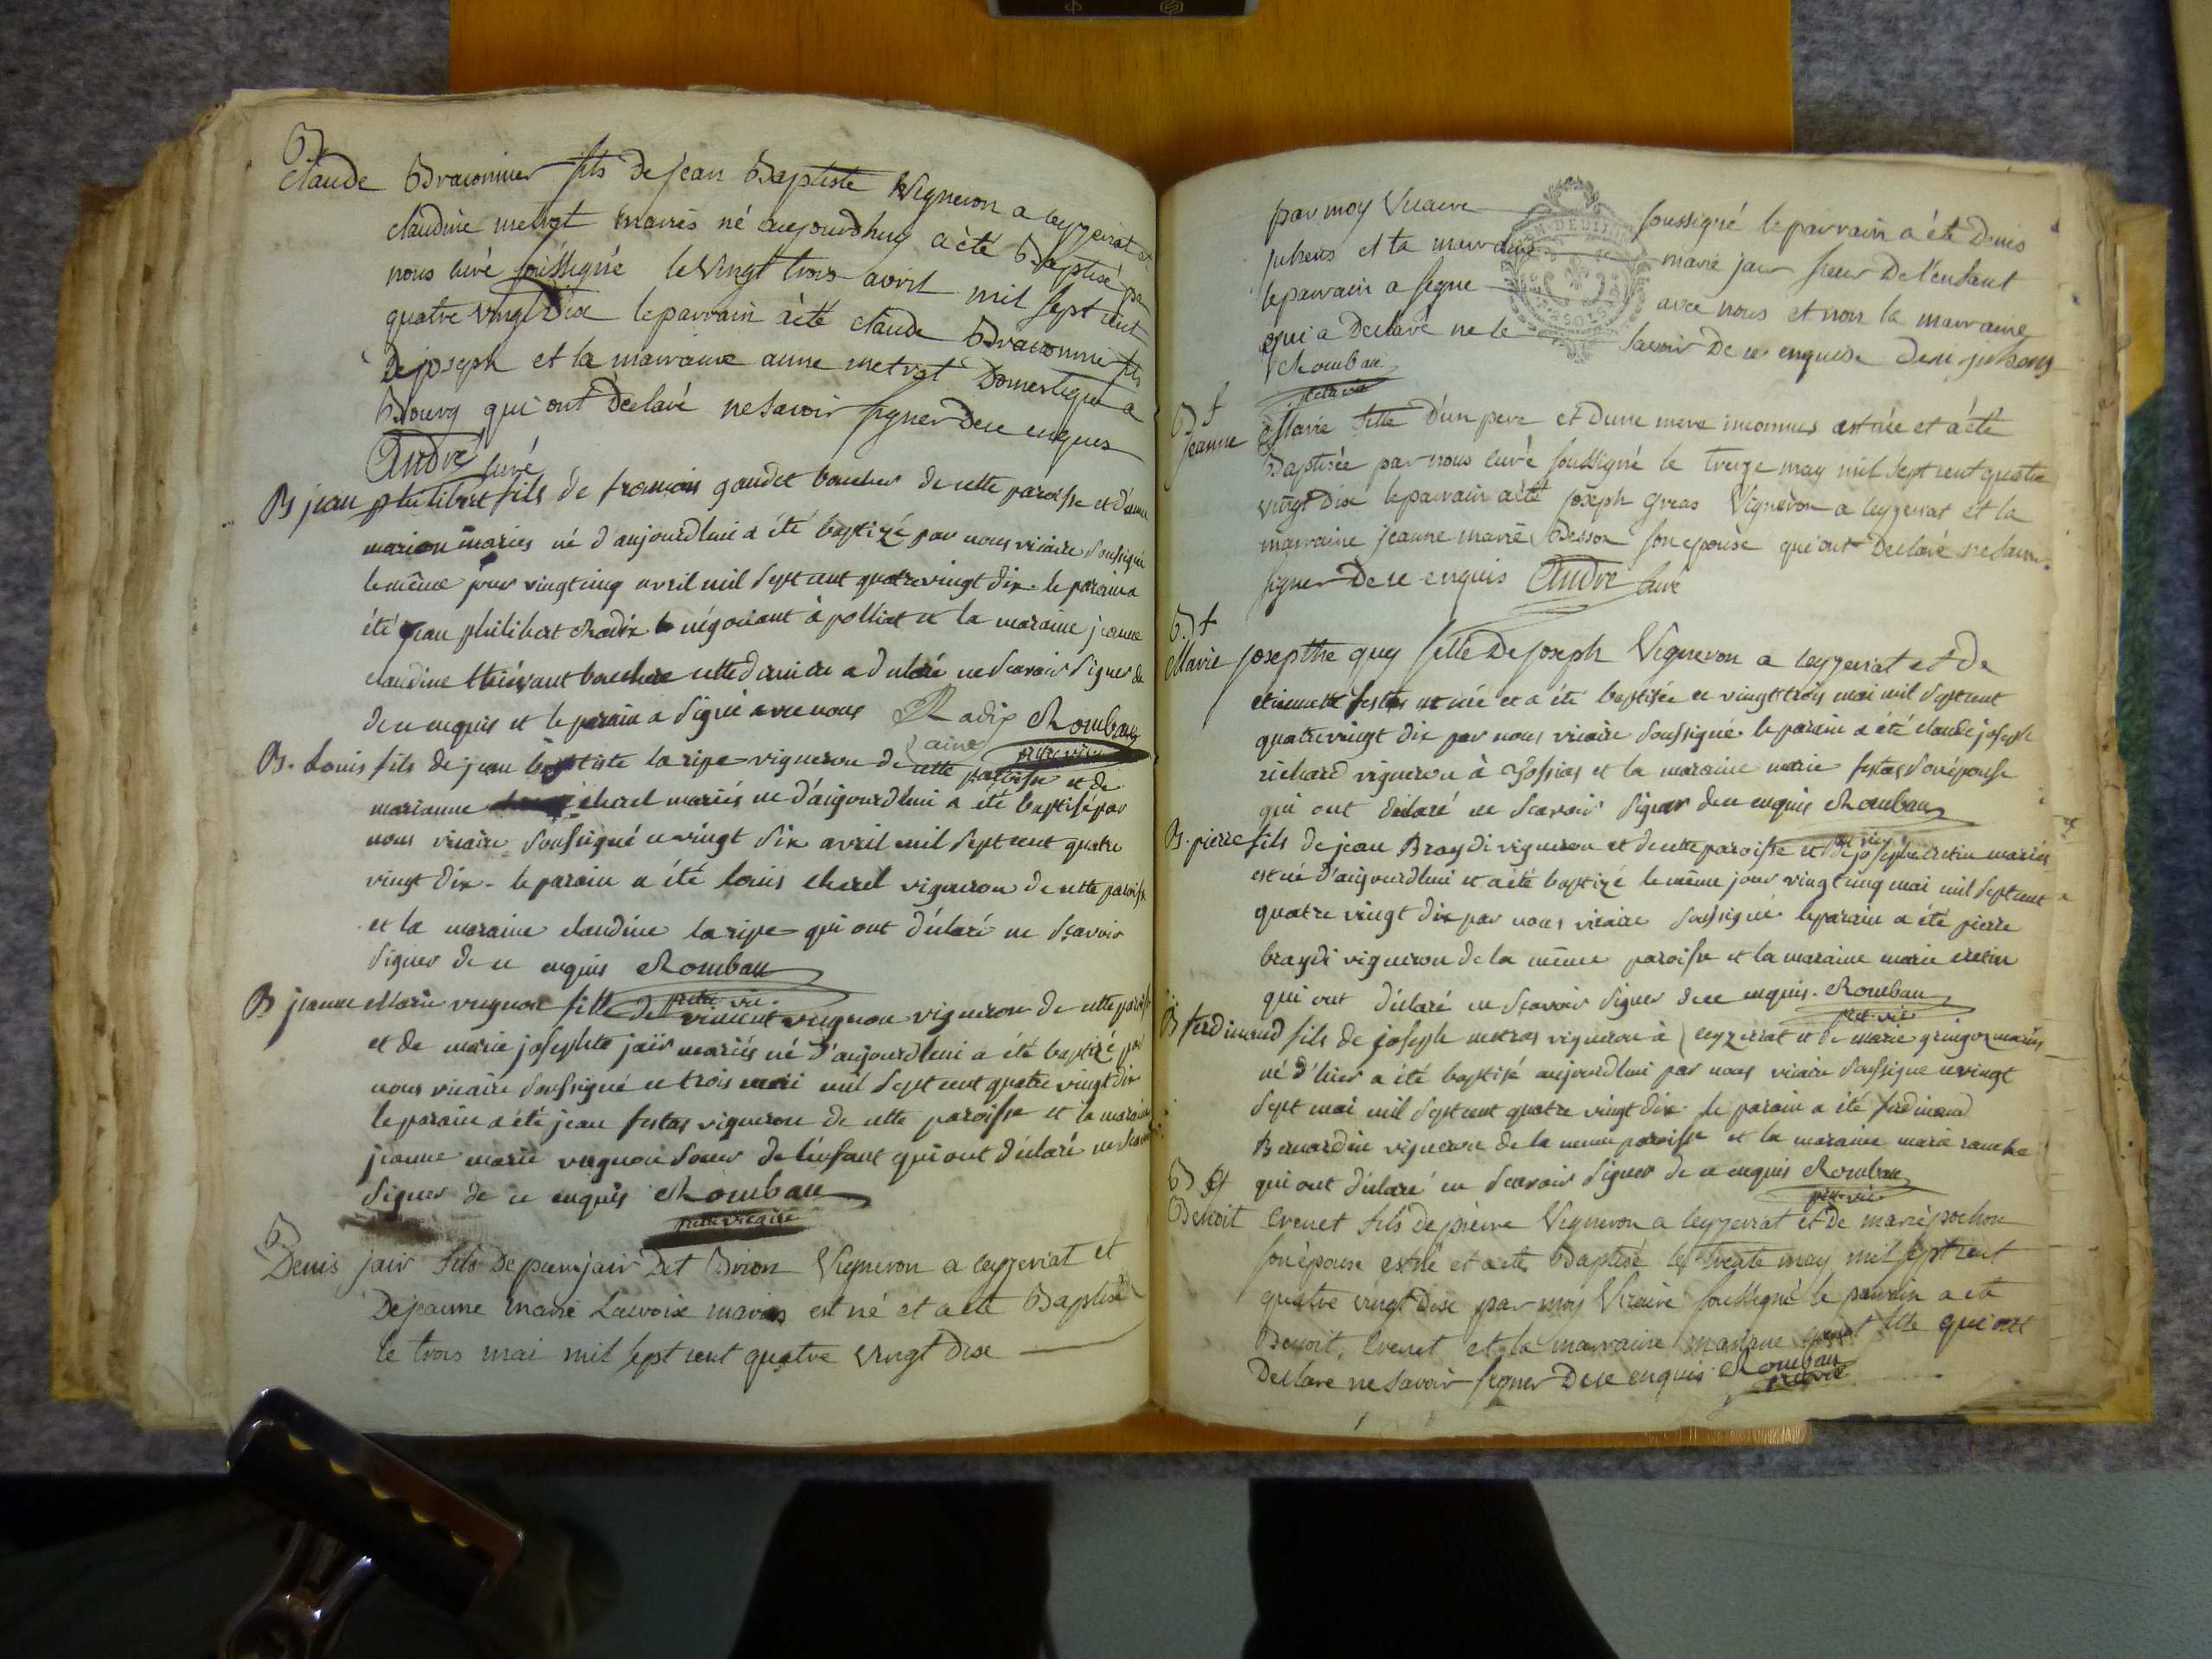 B
claude Braconnier fils de jean Baptiste Vigneron a ceyzeriat et
claudine metrat mariés né aujourdhuy a été Baptisé par
nous curé soussigné le vingt trois avril mil sept cent
quatre vingt Dix le parrain a été claude Braconnie fils
De joseph et la marraine anne metrat Domestique a
Bourg qui ont déclaré ne savoir signer De ce enquis
André curé
B jean philibert fils de francois gaudet boucher de cette paroisse et d'anne
marion mariés né d'aujourdhui a été baptizé par nous vicaire soussigné
le même jour vingt cinq avril mil sept cent quatre vingt dix. le parain a
été jean philibert Radix négociant à polliat et la maraine jeanne
claudine bouchere cette derniere a declaré ne scavoir signer de
de ce enquis et le parain a signé avec nous Radix Rombau
ainé pretre vicaire
B. Louis fils de jean baptiste la ripe vigneron de cette paroisse et de
marianne cherel mariés né d'aujourdhui a été baptisé par
nous vicaire soussigné ce vingt six avril mil sept cent quatre
vingt dix. le parain a été louis cherel vigneron de cette paroisse
et la maraine claudine la ripe qui ont déclaré ne scavoir
signer de ce enquis Rombau
pretre vic.
B jeanne Marie vugnon fille de vincent vugnon vigneron de cette paroisse
et de marie josephte jaïr mariés né d'aujourdhui a été baptizé par
nous vicaire soussigné ce trois mai mil sept cent quatre vingt dix
le parain a été jean festas vigneron de cette paroisse et la maraine
jeanne marie vugnon soeur de l'enfant qui ont déclaré ne scavoir
signer de ce enquis Rombau
pretre vicaire
B
Denis jair fils De pierre jair Dit Brion Vigneron a ceyzeriat et
De jeanne marie Lacroix mariés est né et a été Baptisé
le trois mai mil sept cent quatre vingt dix
par moy Vicaire soussigné le parrain a été Denis
juhens et la marraine marie jair soeur De l'enfant
le parrain a signe avec nous et non la marraine
qui a Declaré ne le savoir De ce enquise Denis juhens
Rombau
pretre vic
B †
Jeanne Marie fille D'un pere et D'une mere inconnus est née et a été
Baptisée par nous curé soussigné le treize may mil sept cent quatre
vingt Dix le parrain a été joseph greas Vigneron a ceyzeriat et la
marraine jeanne marie Besson son epouse qui ont Declaré ne savoir
signer De ce enquis André curé
B. †
Marie josepthe guy fille De joseph Vigneron a ceyzeriat et de
etiennette festas est née et a été baptisée ce vingt trois mai mil sept cent
quatre vingt dix par nous vicaire soussigné. le parain a été claude joseph
richard vigneron à Jossias et la maraine marie festas son épouse
qui ont déclaré ne scavoir signer de ce enquis Rombau
B. pierre fils de jean Braydi vigneron et de cette paroisse et de josephe cretin mariés
est né d'aujourdhui et a été baptizé le même jour vingt cinq mai mil sept cent
quatre vingt dix par nous vicaire soussigné. le parain a été pierre
braydi vigneron de la même paroisse et la maraine marie cretin
qui ont déclaré ne scavoir signer de ce enquis. Rombau
pret. vic
B ferdinand fils de joseph metras vigneron à ceyzeriat et de marie gringoz mariés
né d'hier a été baptisé aujourdhui par nous vicaire soussigné ce vingt
sept mai mil sept cent quatre vingt dix. le parain a été ferdinand
Bernardin vigneron de la meme paroisse et la maraine marie ranche
qui ont déclaré ne scavoir signer de ce enquis Rombau
pret. vic.
B †
Benoit Crenet fils de pierre Vigneron a ceyzeriat et de marie pochon
son épouse est né et a été Baptisé le trente may mil sept cent
quatre vingt Dix par moy Vicaire soussigné le parrain a été
Benoit Crenet et la marraine mariane fille qui ont
Declare ne savoir signer De ce enquis Rombau
pretre vic